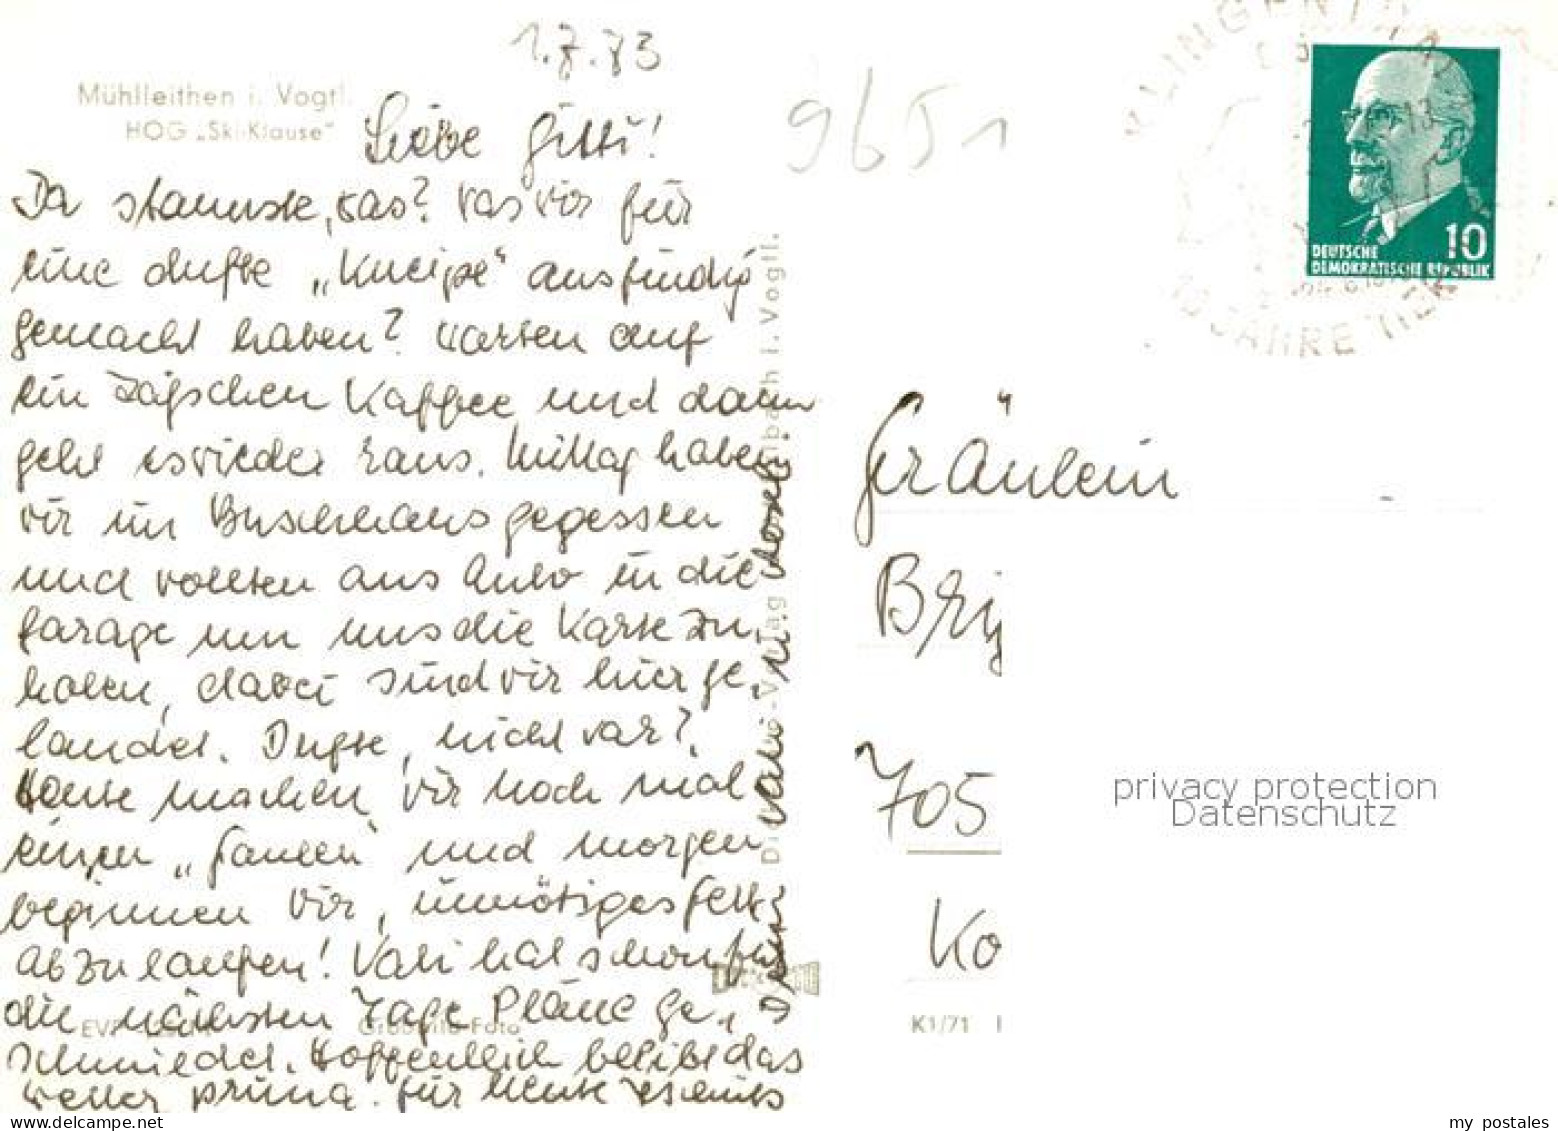 1.7.73
Mühlleithen i. Vogtl.
HOG „Ski-Klause"
9651
Liebe Gitti!
Da staunste, was? was wir für
eine dufte „Kneipe" ausfindig
gemacht haben? Warten auf
ein Täßchen Kaffee und dann
geht es wieder raus. Mittag haben
wir im Buschhaus gegessen
und wollten ans Auto in die
Garage um uns die Karte zu
holen, dabei sind wir hier ge-
landet. Dufte, nicht war?
Heute machen wir noch mal
einen „Faulen" und morgen
beginnen wir, unnötiges Fett
abzulaufen! Vati hat schon für
die nächsten Tage Pläne ge-
schmiedet. Hoffentlich bleibt das
Wetter prima. Für heute
Vati u.
KLINGENTHAL
JAHRE
DEUTSCHE
DEMOKRATISCHE REPUBLIK
10
Fräulein
705
Ko
K1/71
Foto
i. Vogtl.
privacy protection
Datenschutz
my postales